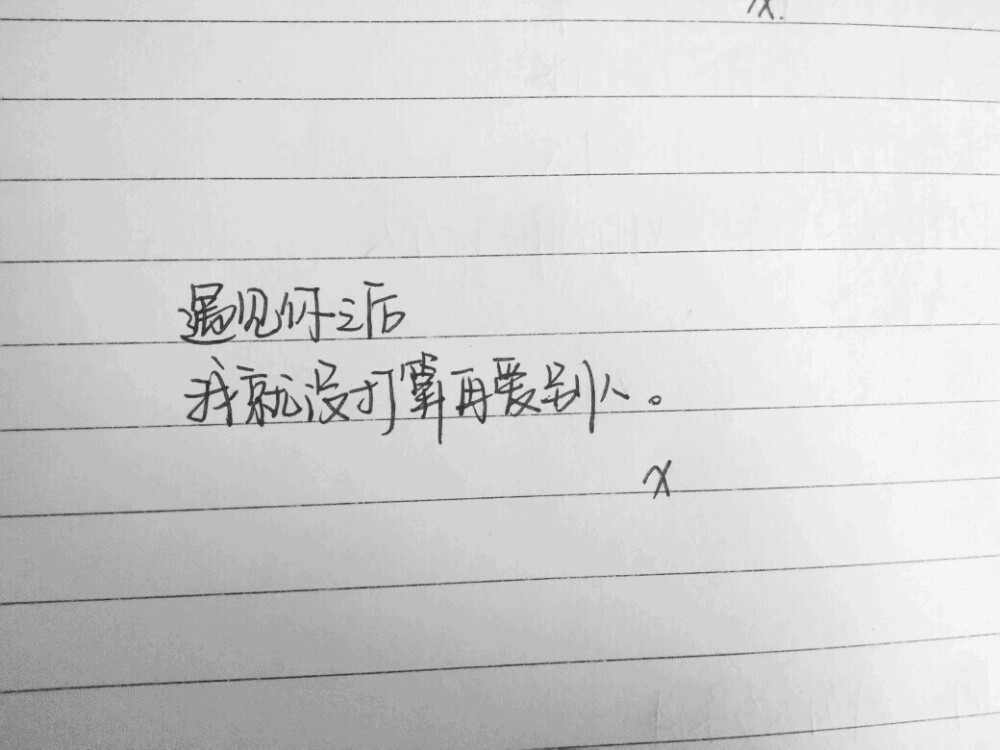 x.
遇见你之后
我就没打算再爱别人。
x